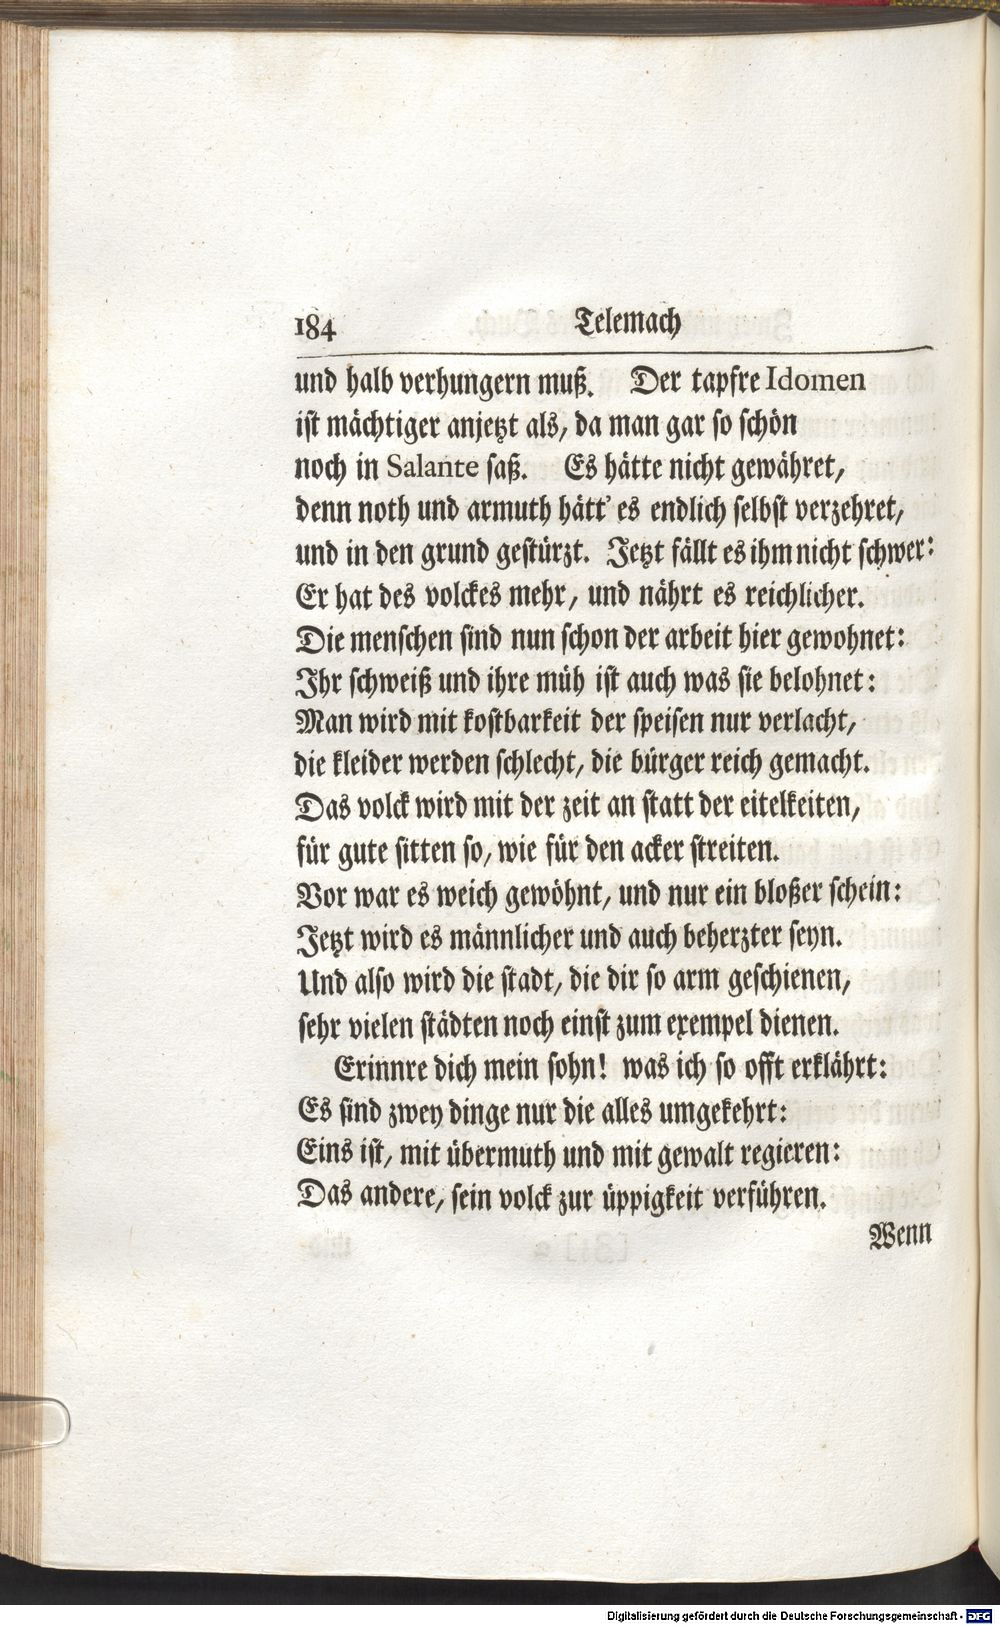 184 Telemach
und halb verhungern muß. Der tapfre Idomen
ist mächtiger anjetzt als, da man gar so schön
noch in Salante saß. Es hätte nicht gewähret,
denn noth und armuth hätt' es endlich selbst verzehret,
und in den grund gestürzt. Jetzt fällt es ihm nicht schwer:
Er hat des volckes mehr, und nährt es reichlicher.
Die menschen sind nun schon der arbeit hier gewohnet:
Ihr schweiß und ihre müh ist auch was sie belohnet:
Man wird mit kostbarkeit der speisen nur verlacht,
die kleider werden schlecht, die bürger reich gemacht.
Das volck wird mit der zeit an statt der eitelkeiten,
für gute sitten so, wie für den acker streiten.
Vor war es weich gewöhnt, und nur ein bloßer schein:
Jetzt wird es männlicher und auch beherzter seyn.
Und also wird die stadt, die dir so arm geschienen,
sehr vielen städten noch einst zum exempel dienen.
Erinnre dich mein sohn! was ich so offt erklährt:
Es sind zwey dinge nur die alles umgekehrt:
Eins ist, mit übermuth und mit gewalt regieren:
Das andere, sein volck zur üppigkeit verführen.
Wenn
Digitalisierung gefördert durch die Deutsche Forschungsgemeinschaft - DFG